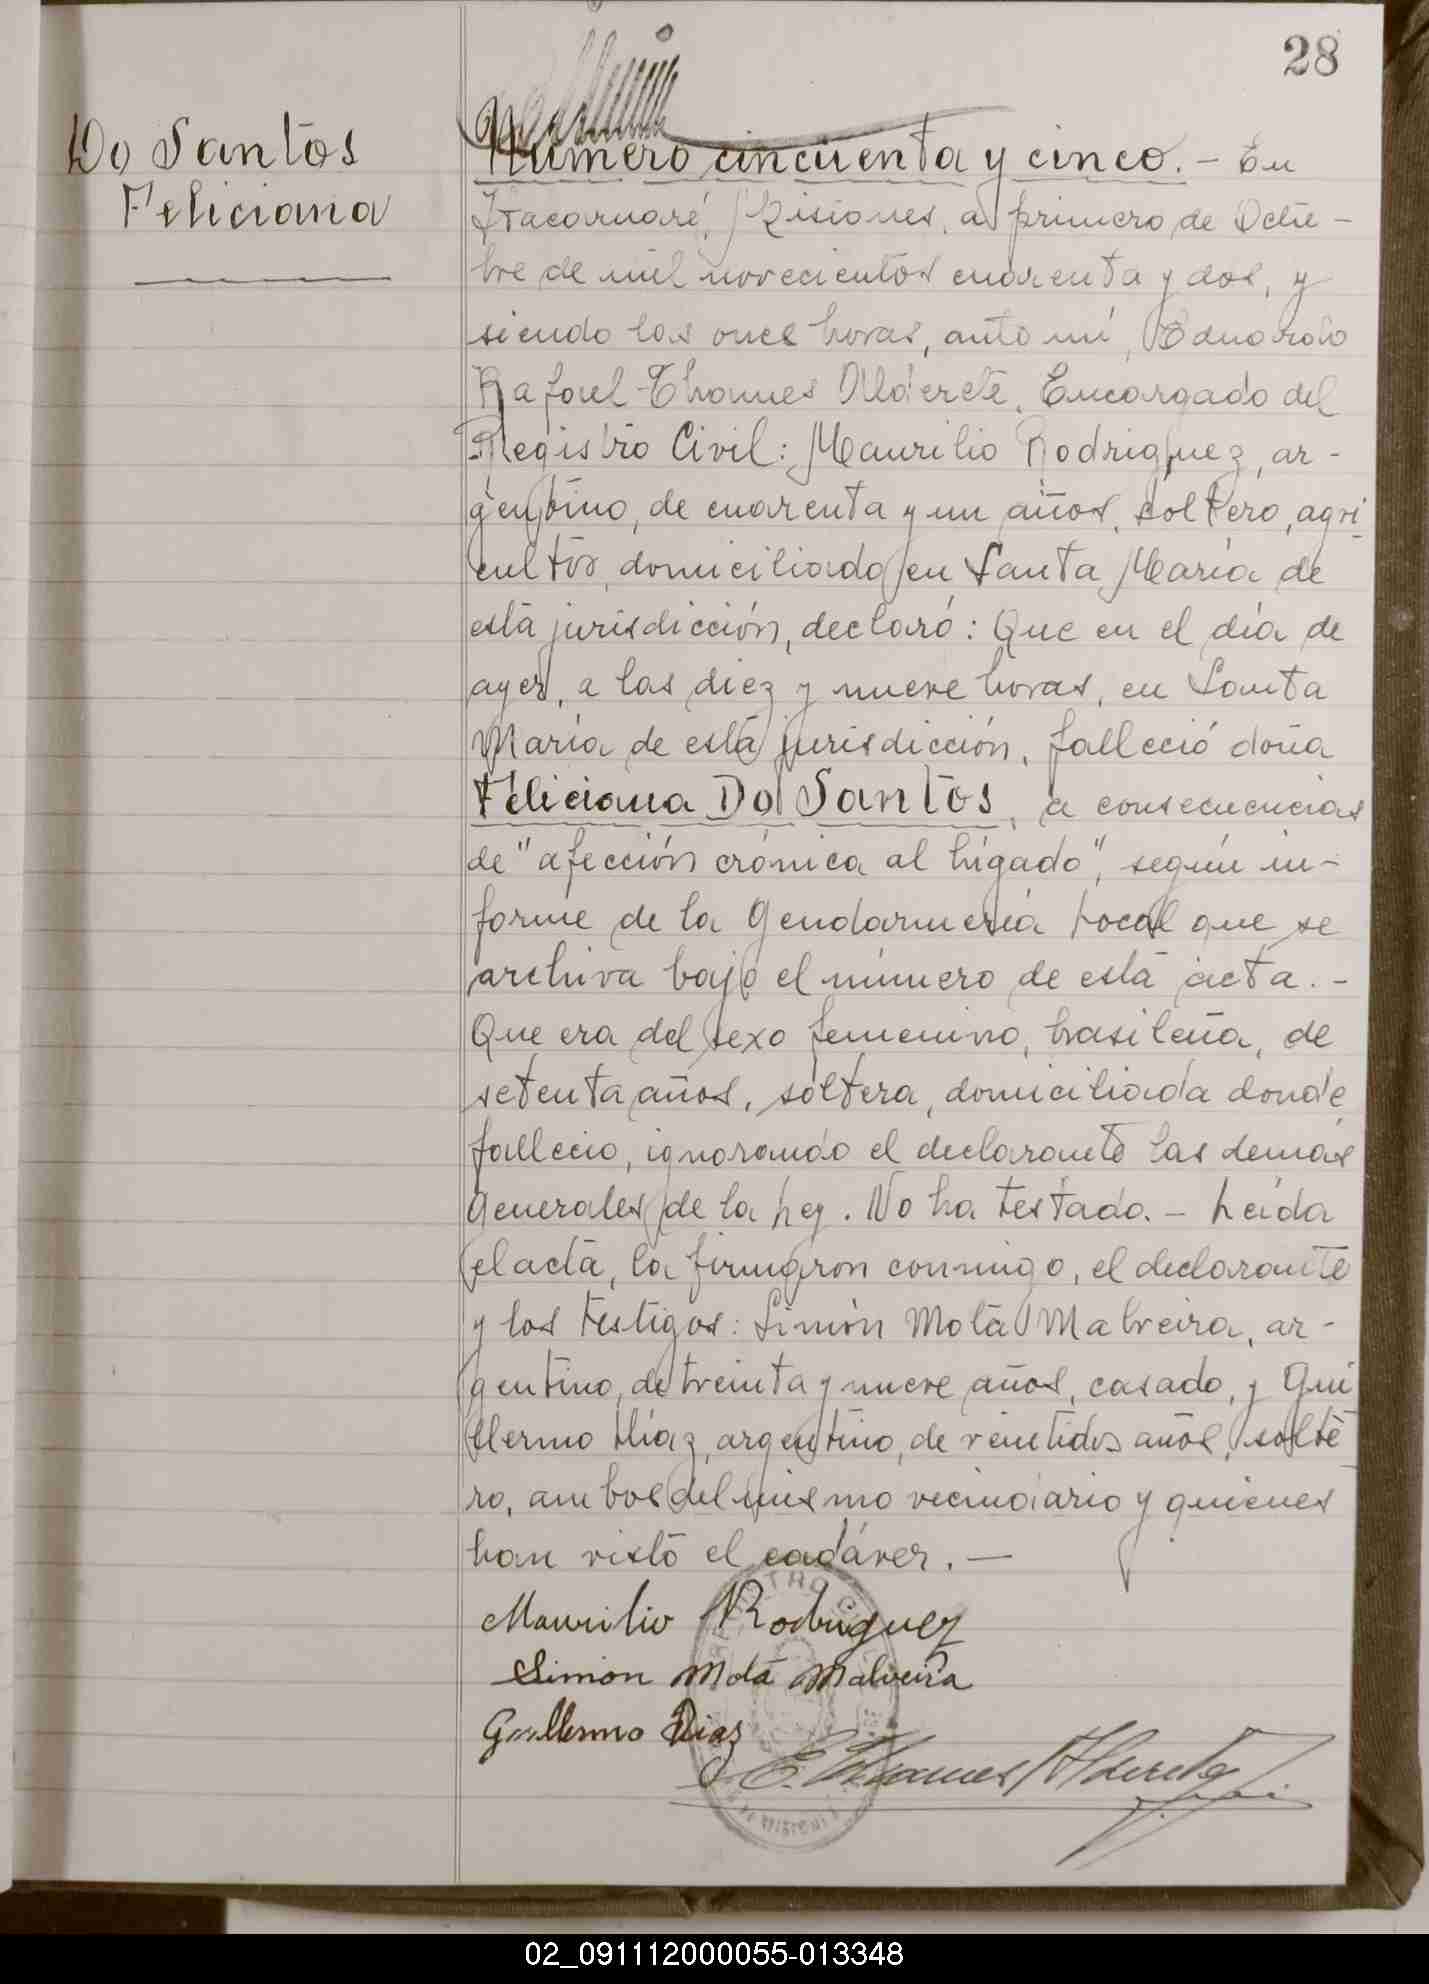 28
Do Santos
Feliciana
Número cincuenta y cinco. - En
Itacaruaré, Misiones, a primero de Octu-
bre de mil novecientos cuarenta y dos, y
siendo las once horas, ante mí, Eduardo
Rafael Thames Alderete, Encargado del
Registro Civil: Maurilio Rodriguez, ar-
gentino, de cuarenta y un años, soltero, agri-
cultor, domiciliado en Santa María de
esta jurisdicción, declaró: Que en el día de
ayer, a las diez y nueve horas, en Santa
María de esta jurisdicción, falleció doña
Feliciana Do Santos, a consecuencias
de "afección crónica al hígado", según in-
forme de la Gendarmería Local que se
archiva bajo el número de esta acta. -
Que era del sexo femenino, brasileña, de
setenta años, soltera, domiciliada donde
falleció, ignorando el declarante las demás
generales de la Ley. No ha testado. - Leída
el acta, la firmaron conmigo, el declarante
y los testigos: Simón Mota Malveira, ar-
gentino, de treinta y nueve años, casado, y Gui
llermo Díaz, argentino, de veintidos años, solte
ro, ambos del mismo vecindario y quienes
han visto el cadáver. -
Maurilio Rodriguez
Simon Mota Malveira
Guillermo Diaz
E. Thames Alderete
02_091112000055-013348